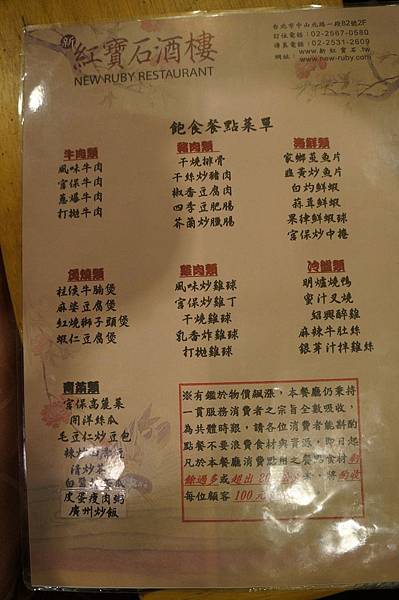 新
紅寶石酒樓
NEW RUBY RESTAURANT
台北市中山北路一段82號2F
訂位電話：02-2567-0580
傳真電話：02-2531-2609
www.新紅寶石.tw
網址：www.new-ruby.com
飽食餐點菜單
牛肉類
風味牛肉
宮保牛肉
蔥爆牛肉
打拋牛肉
豬肉類
干燒排骨
干絲炒豬肉
椒香豆腐肉
四季豆肥腸
芥蘭炒臘腸
海鮮類
家鄉蒸魚片
韭黃炒魚片
白灼鮮蝦
蒜茸鮮蝦
果律鮮蝦球
宮保炒中捲
煲燒類
柱侯牛腩煲
麻婆豆腐煲
紅燒獅子頭煲
蝦仁豆腐煲
雞肉類
風味炒雞球
宮保炒雞丁
干燒雞球
乳香炸雞球
打拋雞球
冷盤類
明爐燒鴨
蜜汁叉燒
紹興醉雞
麻辣牛肚絲
銀芽汁拌雞絲
青菜類
宮保高麗菜
開洋絲瓜
毛豆仁炒豆包
辣炒
清炒
皮蛋瘦肉粥
廣州炒飯
※有鑑於物價飆漲，本餐廳仍秉持
一貫服務消費者之宗旨全數吸收，
為共體時艱，請各位消費者能斟酌
點餐不要浪費食材與資源，即日起
凡於本餐廳消費點用之餐點食材剩
餘過多或超出 將酌收
每位顧客 100元